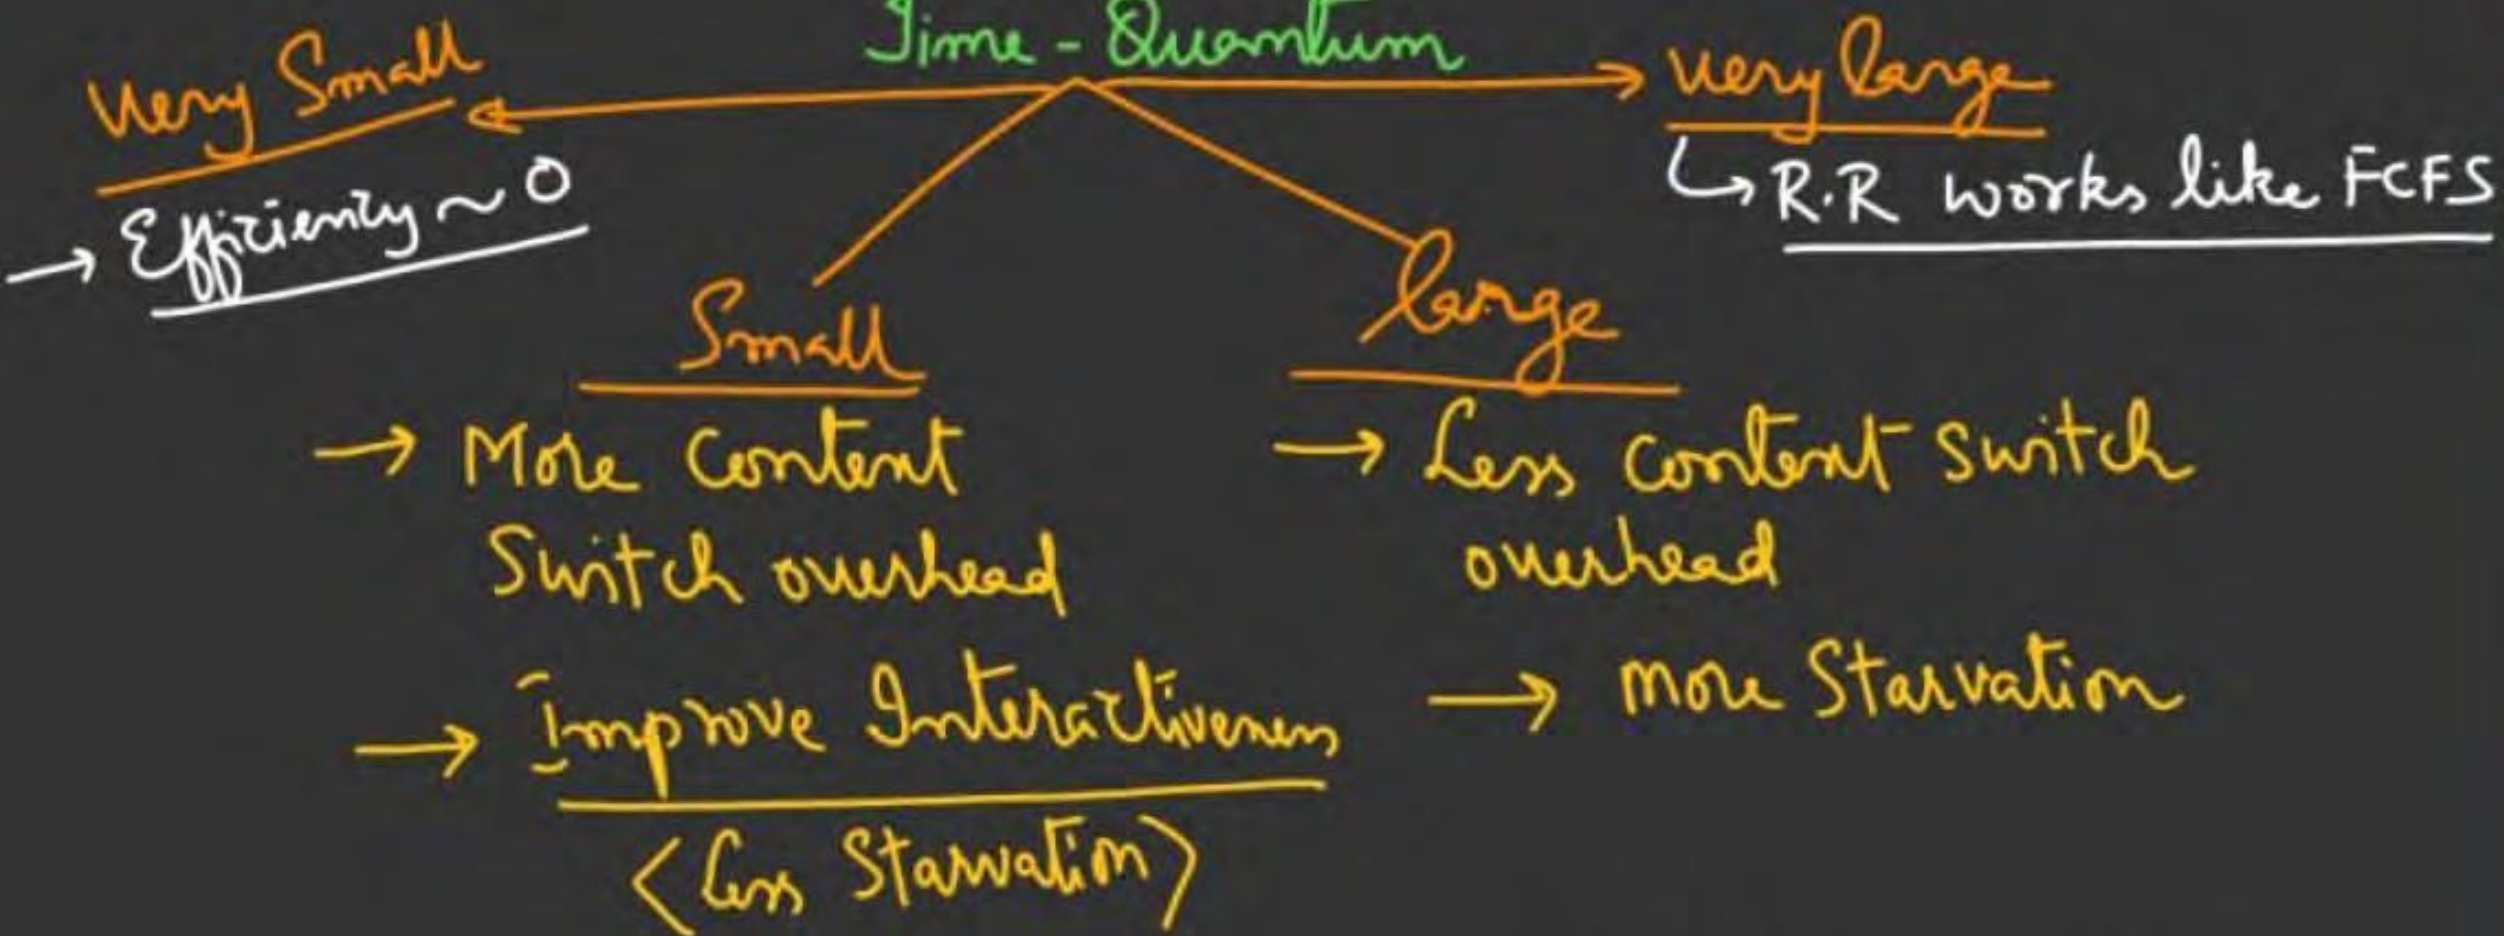 Time - Quantum
Very Small
→ Efficiency ~ 0
very large
↳ R.R works like FCFS
Small
→ More Context
Switch overhead
→ Improve Interactiveness
<Less Starvation>
large
→ Less context switch
overhead
→ more Starvation